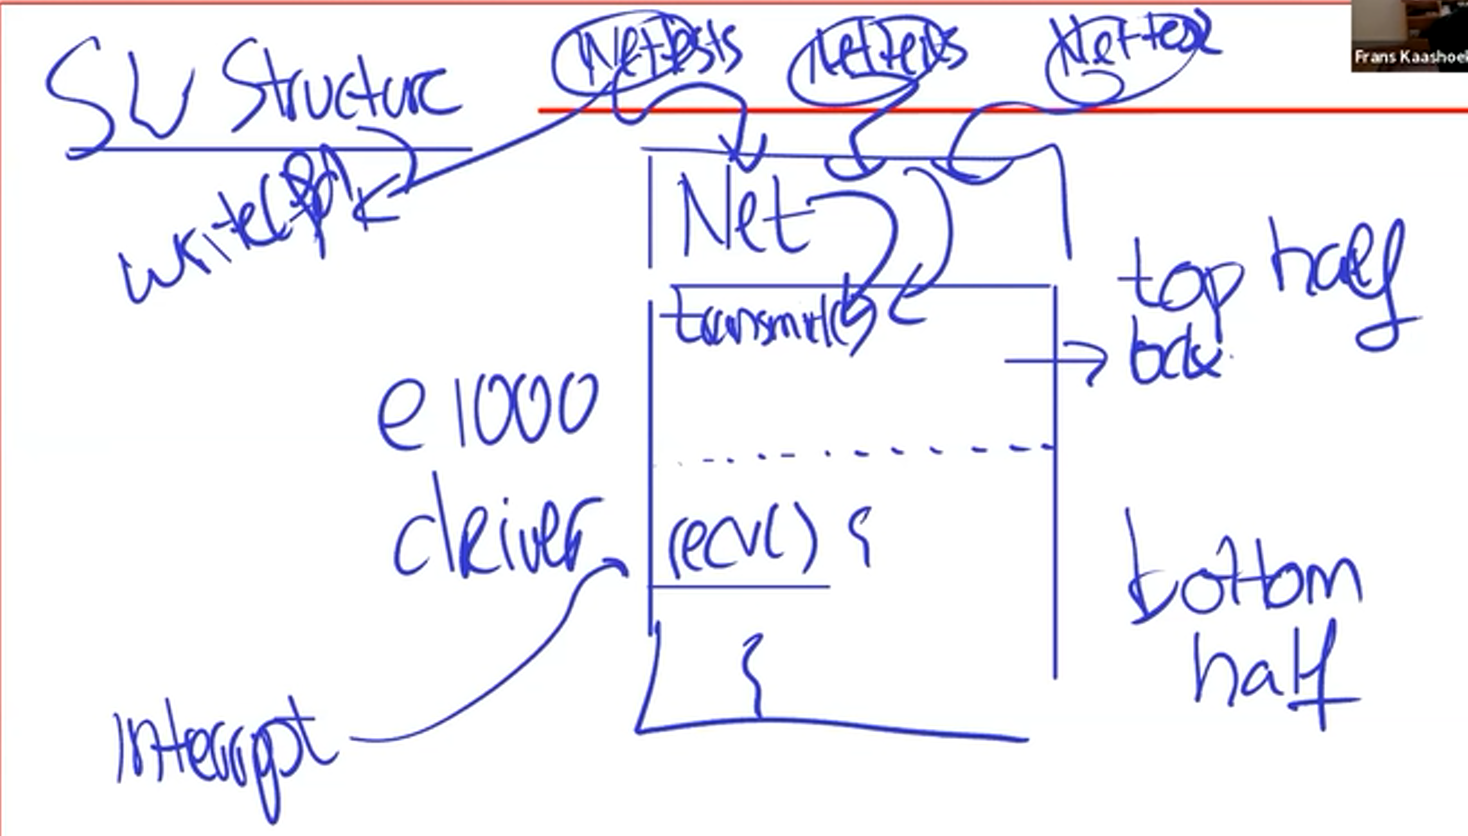 SW Structure
Nettests
Nettests
Nettest
Frans Kaashoek
write(fd)
Net
transmit()
top half
e1000
driver
recv() {
bottom
half
{
Interrupt